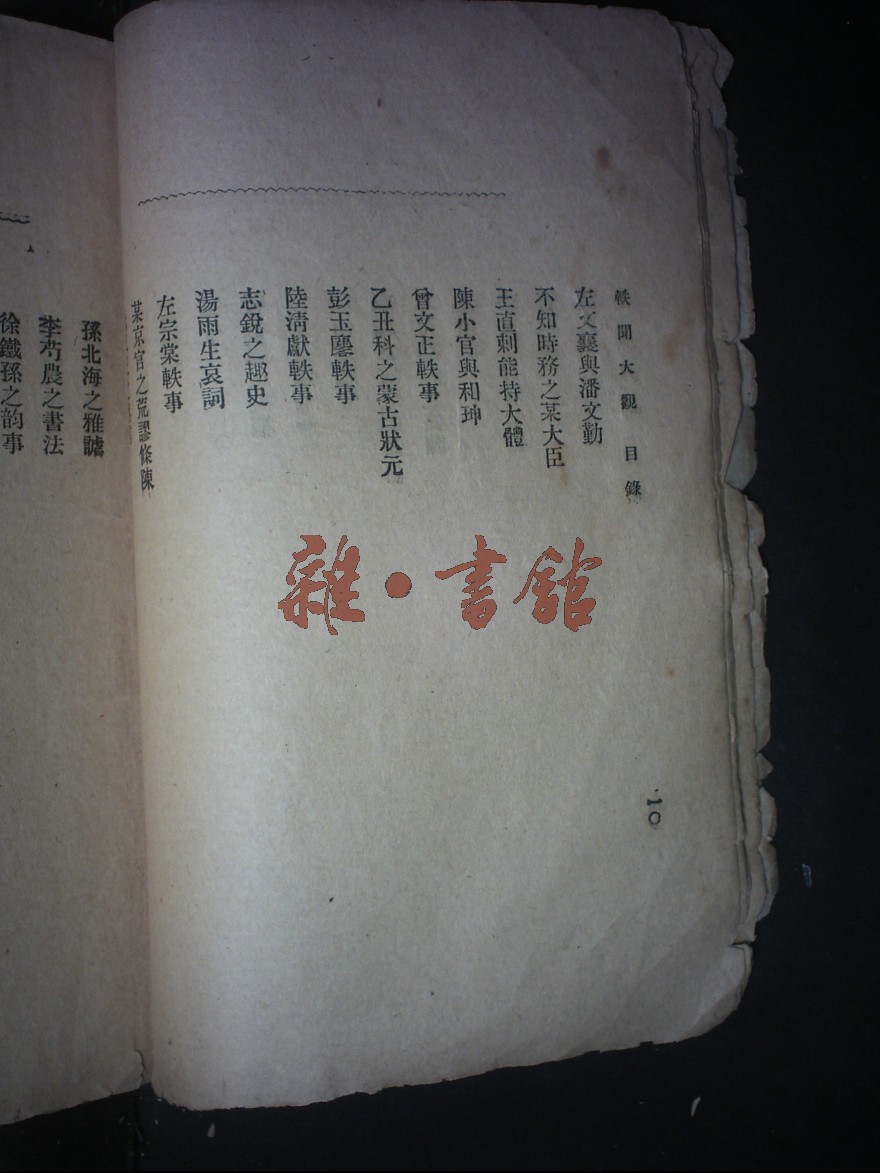 軼聞大觀 目錄
左文襄與潘文勤
不知時務之某大臣
王直刺能持大體
陳小官與和珅
曾文正軼事
乙丑科之蒙古狀元
彭玉麐軼事
陸清獻軼事
志銳之趣史
湯雨生哀詞
左宗棠軼事
某京官之荒謬條陳
一〇
孫北海之雅謔
李芍農之書法
徐鐵孫之韵事
雜·書館